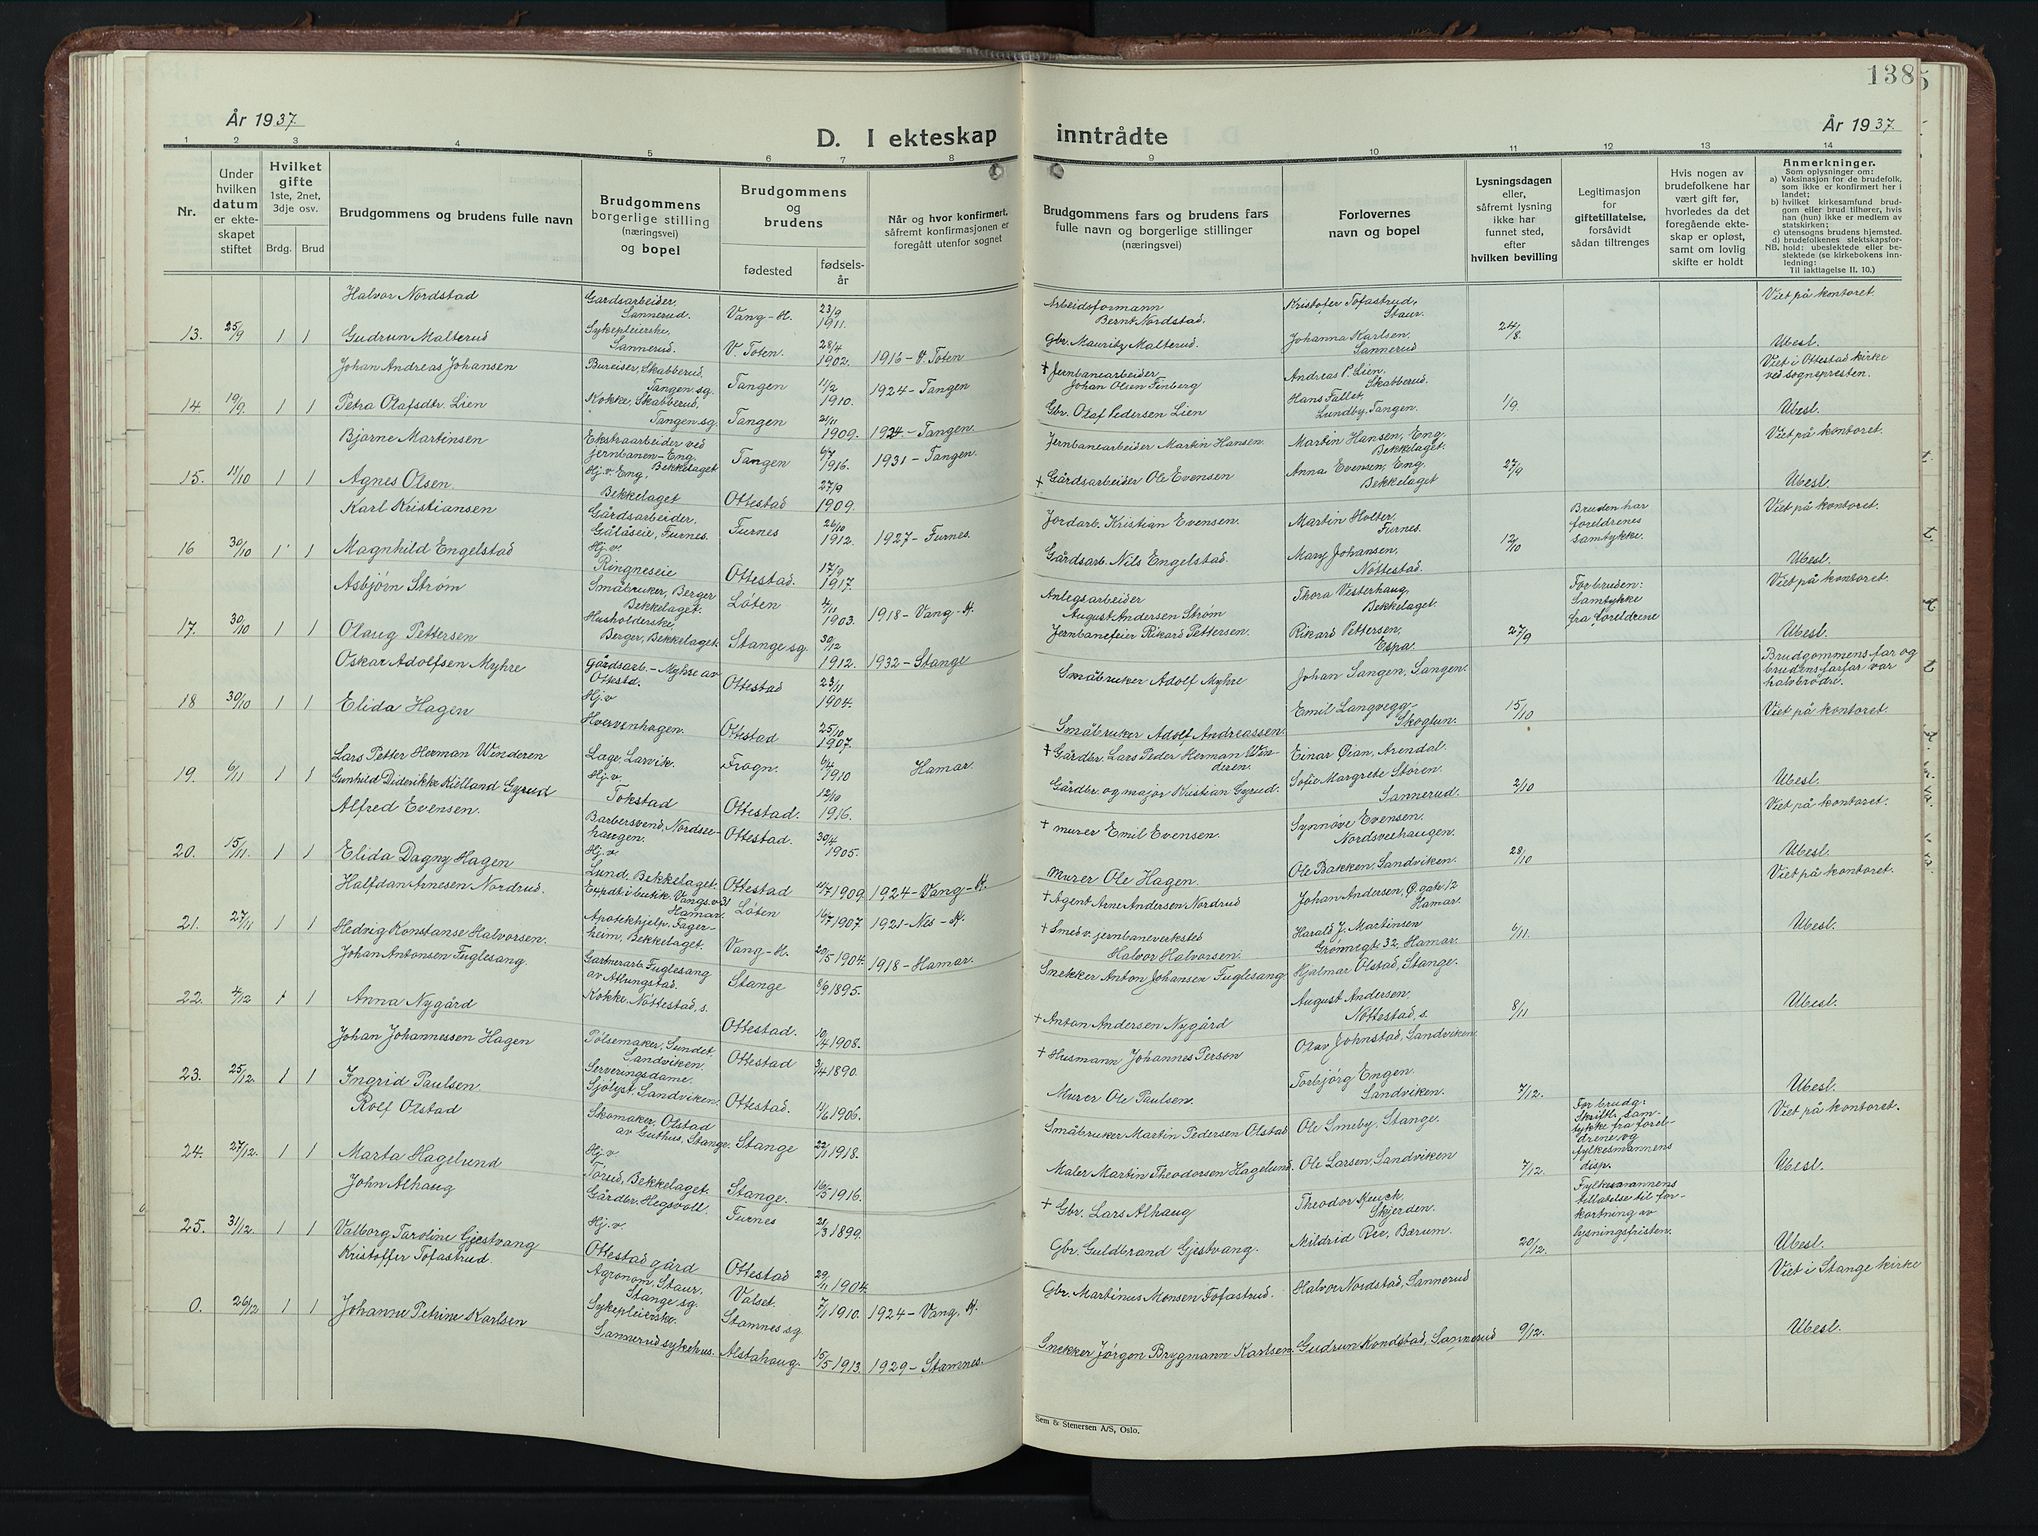 138
År 1937.
D. I ekteskap inntrådte
År 1937.
1 2 3 4 5 6 7 8 9 10 11 12 13 14
Nr.
Under hvilken datum er ekteskapet stiftet
Hvilket gifte 1ste, 2net, 3dje osv.
Brdg. Brud
Brudgommens og brudens fulle navn
Brudgommens borgerlige stilling (næringsvei) og bopel
Brudgommens og brudens
fødested
fødselsår
Når og hvor konfirmert, såfremt konfirmasjonen er foregått utenfor sognet
Brudgommens fars og brudens fars fulle navn og borgerlige stillinger (næringsvei)
Forlovernes navn og bopel
Lysningsdagen eller, såfremt lysning ikke har funnet sted, efter hvilken bevilling
Legitimasjon for giftetillatelse, forsåvidt sådan tiltrenges
Hvis nogen av brudefolkene har vært gift før, hvorledes da det foregående ekteskap er opløst, samt om lovlig skifte er holdt
Anmerkninger.
Som oplysninger om:
a) Vaksinasjon for de brudefolk, som ikke er konfirmert her i landet;
b) hvilket kirkesamfund brudgom eller brud tilhører, hvis han (hun) ikke er medlem av statskirken;
c) utensogns brudens hjemsted.
d) brudefolkenes slektskapsforhold: ubeslektede eller beslektede (se kirkebokens innledning:
NB.
Til iakttagelse II. 10.)
Halvor Nordstad Gårdsarbeider, Sannerud. Vang-H. 23/9 1911. Arbeidsformann Bernt Nordstad. Kristofer Tofastrud, Staur. Viet på kontoret.
13. 25/9 1 1 Gudrun Malterud Sykepleierske, Sannerud. V. Toten. 28/4 1902. 1916 - V. Toten Gbr. Mauritz Malterud. Johanna Karlsen Sannerud 24/8 Ubesl.
Johan Andreas Johansen Bureiser, Skabberud. Tangen sg. Tangen 11/2 1910. 1924 - Tangen † Jernbanearbeider Johan Olsen Finberg Andreas P. Lien, Skabberud. Viet i Ottestad kirke ved sognepresten.
14. 19/9. 1 1 Petra Olafsdtr. Lien Kokke, Skabberud, Tangen sg. Tangen 21/11 1909. 1924 - Tangen. Gbr. Olaf Pedersen Lien Hans Fallet, Lundby, Tangen. 1/9. Ubesl.
Bjarne Martinsen Ekstraarbeider ved jernbanen - Eng. Bekkelaget Tangen 6/7 1916. 1931 - Tangen. Jernbanearbeider Martin Hansen. Martin Hansen, Eng. Bekkelaget. Viet på kontoret.
15. 11/10 1 1 Agnes Olsen. Hj. v. Eng, Bekkelaget Ottestad 27/9 1909. † Gårdsarbeider Ole Evensen Anna Evensen, Eng. Bekkelaget 27/9 Ubesl.
Karl Kristiansen Gårdsarbeider, Gålåseie, Furnes. Furnes 26/10 1912. 1927 - Furnes. Jordarb. Kristian Evensen. Martin Holter, Furnes. Bruden har foreldrenes samtykke. Viet på kontoret.
16 30/10 1 1 Magnhild Engelstad Hj. v. Ringneseie Ottestad. 17/9 1917. Gårdsarb. Nils Engelstad. Mary Johansen, Nöttestad. 12/10 Ubesl.
Asbjørn Strøm Småbruker, Berger Bekkelaget. Løten 4/11 1903. 1918 - Vang H. Anlegsarbeider August Andersen Strøm Thora Vesterhaug, Bekkelaget. For bruden: Samtykke fra foreldrene Viet på kontoret.
17. 30/10 1 1 Olaug Pettersen Husholderske, Berger, Bekkelaget. Stange sg. 30/12 1912. 1932 - Stange Jernbanefeier Rikard Pettersen. Rikard Pettersen, Espa. 27/9 Ubesl.
Oskar Adolfsen Myhre Gårdsarb. - Myhre av Ottestd. Ottestad 23/11 1904. Småbruker Adolf Myhre Johan Sangen, Sangen. Brudgommens far og brudens farfar var halvbrødre.
18 30/10 1 1 Elida Hagen Hj. v Hvervenhagen. Ottestad 25/10 1907. Småbruker Adolf Andreassen. Emil Langvegg- Skogtun. 15/10 Viet på kontoret.
Lars Petter Herman Winderen Lage, Larvik. Frogn. 6/4 1910 Hamar. † Gårdbr. Lars Peder Herman Winderen. Einar Øian, Arendal.
19. 6/11 1 1 Gunhild Diderikke Kielland Gyrud Hj. v. Tokstad Ottestad. 12/10 1916. Gårdbr. og major Kristian Gyrud. Sofie Margrete Stören. Sannerud. 2/10 Ubesl.
Alfred Evensen. Barbersvend, Nordsveehaugen. Ottestad. 30/4 1905. † murer Emil Evensen. Synnöve Evensen. Nordsveehaugen. Viet på kontoret.
20. 15/11. 1 1 Elida Dagny Hagen Hj. v. Lund, Bekkelaget. Ottestad 11/7 1909. 1924 - Vang - H. Murer Ole Hagen. Ole Bakken, Sandviken. 28/10 Ubesl.
Halfdan Arnesen Nordrud. Expdt i butik. Vangs v. 31 Hamar. Løten 16/7 1907. 1921 - Nes - H. † Agent Arne Andersen Nordrud Johan Andersen, Ø. gate 12 Hamar. Viet på kontoret.
21. 27/11 1 1 Hedvig Konstanse Halvorsen. Apotekhjelp. Fagerheim, Bekkelaget. Vang-H. 20/5 1904. 1918 - Hamar. † Smed v. jernbaneverksted Halvor Halvorsen. Harald J. Martinsen Grønnegt 32, Hamar. 6/11. Ubesl.
Johan Antonsen Fuglesang Gartnerarb. Fuglesang av Atlungstad. Stange 8/9 1895. Snekker Anton Johansen Fuglesang Hjalmar Olstad, Stange.
22. 4/12 1 1 Anna Nygård Kokke, Nöttestad, s. Ottestad. 10/4 1908. † Anton Andersen Nygård August Andersen, Nöttestad, s. 8/11 Ubesl.
Johan Johannessen Hagen Pølsemaker, Sundet Sandviken. Ottestad 3/4 1890. † Husmann Johannes Person Olav Johnstad, Sandviken.
23. 25/12. 1 1 Ingrid Paulsen. Serveringsdame. Sjölyst, Sandviken. Ottestad. 11/6 1906. Murer Ole Paulsen. Torbjörg Engen Sandviken. 7/12. Ubesl.
Rolf Olstad Skomaker, Olstad av Guthus, Stange. Stange 22/1 1918. Småbruker Martin Pedersen Olstad Ole Smeby, Stange. For brudg: Skriftl. samtykke fra foreldrene og fylkesmannens disp. Viet på kontoret.
24. 27/12. 1 1 Marta Hagelund Hj. v. Tørud, Bekkelaget. Stange. 16/5 1916. Maler Martin Theodorsen Hagelund. Ole Larsen, Sandviken 7/12. Ubesl.
John Alhaug Gårdbr. Hegsvoll. Furnes 21/3 1899. † Gbr. Lars Alhaug Theodor Keuch, Skjerden. Fylkesmannens tillatelse til forkortning av lysningsfristen.
25. 31/12. 1 1 Valborg Taroline Gjestvang Hj. v. Ottestad gård Ottestad 29/11 1904. Gbr. Guldbrand Gjestvang. Mildrid Ree, Bærum. 20/12. Ubesl.
Kristoffer Tofastrud. Agronom, Staur, Stange sg. Valset. 7/11 1910. 1924 - Vang. H. Gbr. Martinus Monsen Tofastrud. Halvor Nordstad, Sannerud Viet i Stange kirke
0. 26/12 1 1 Johanne Petrine Karlsen Sykepleierske. Sannerud sykehus. Stamnes sg. Alstahaug. 15/5 1913. 1929 - Stamnes. Snekker Jørgen Brygmann Karlsen. Gudrun Kondstad, Sannerud 9/12. Ubesl.
Sem & Stenersen A/S, Oslo.